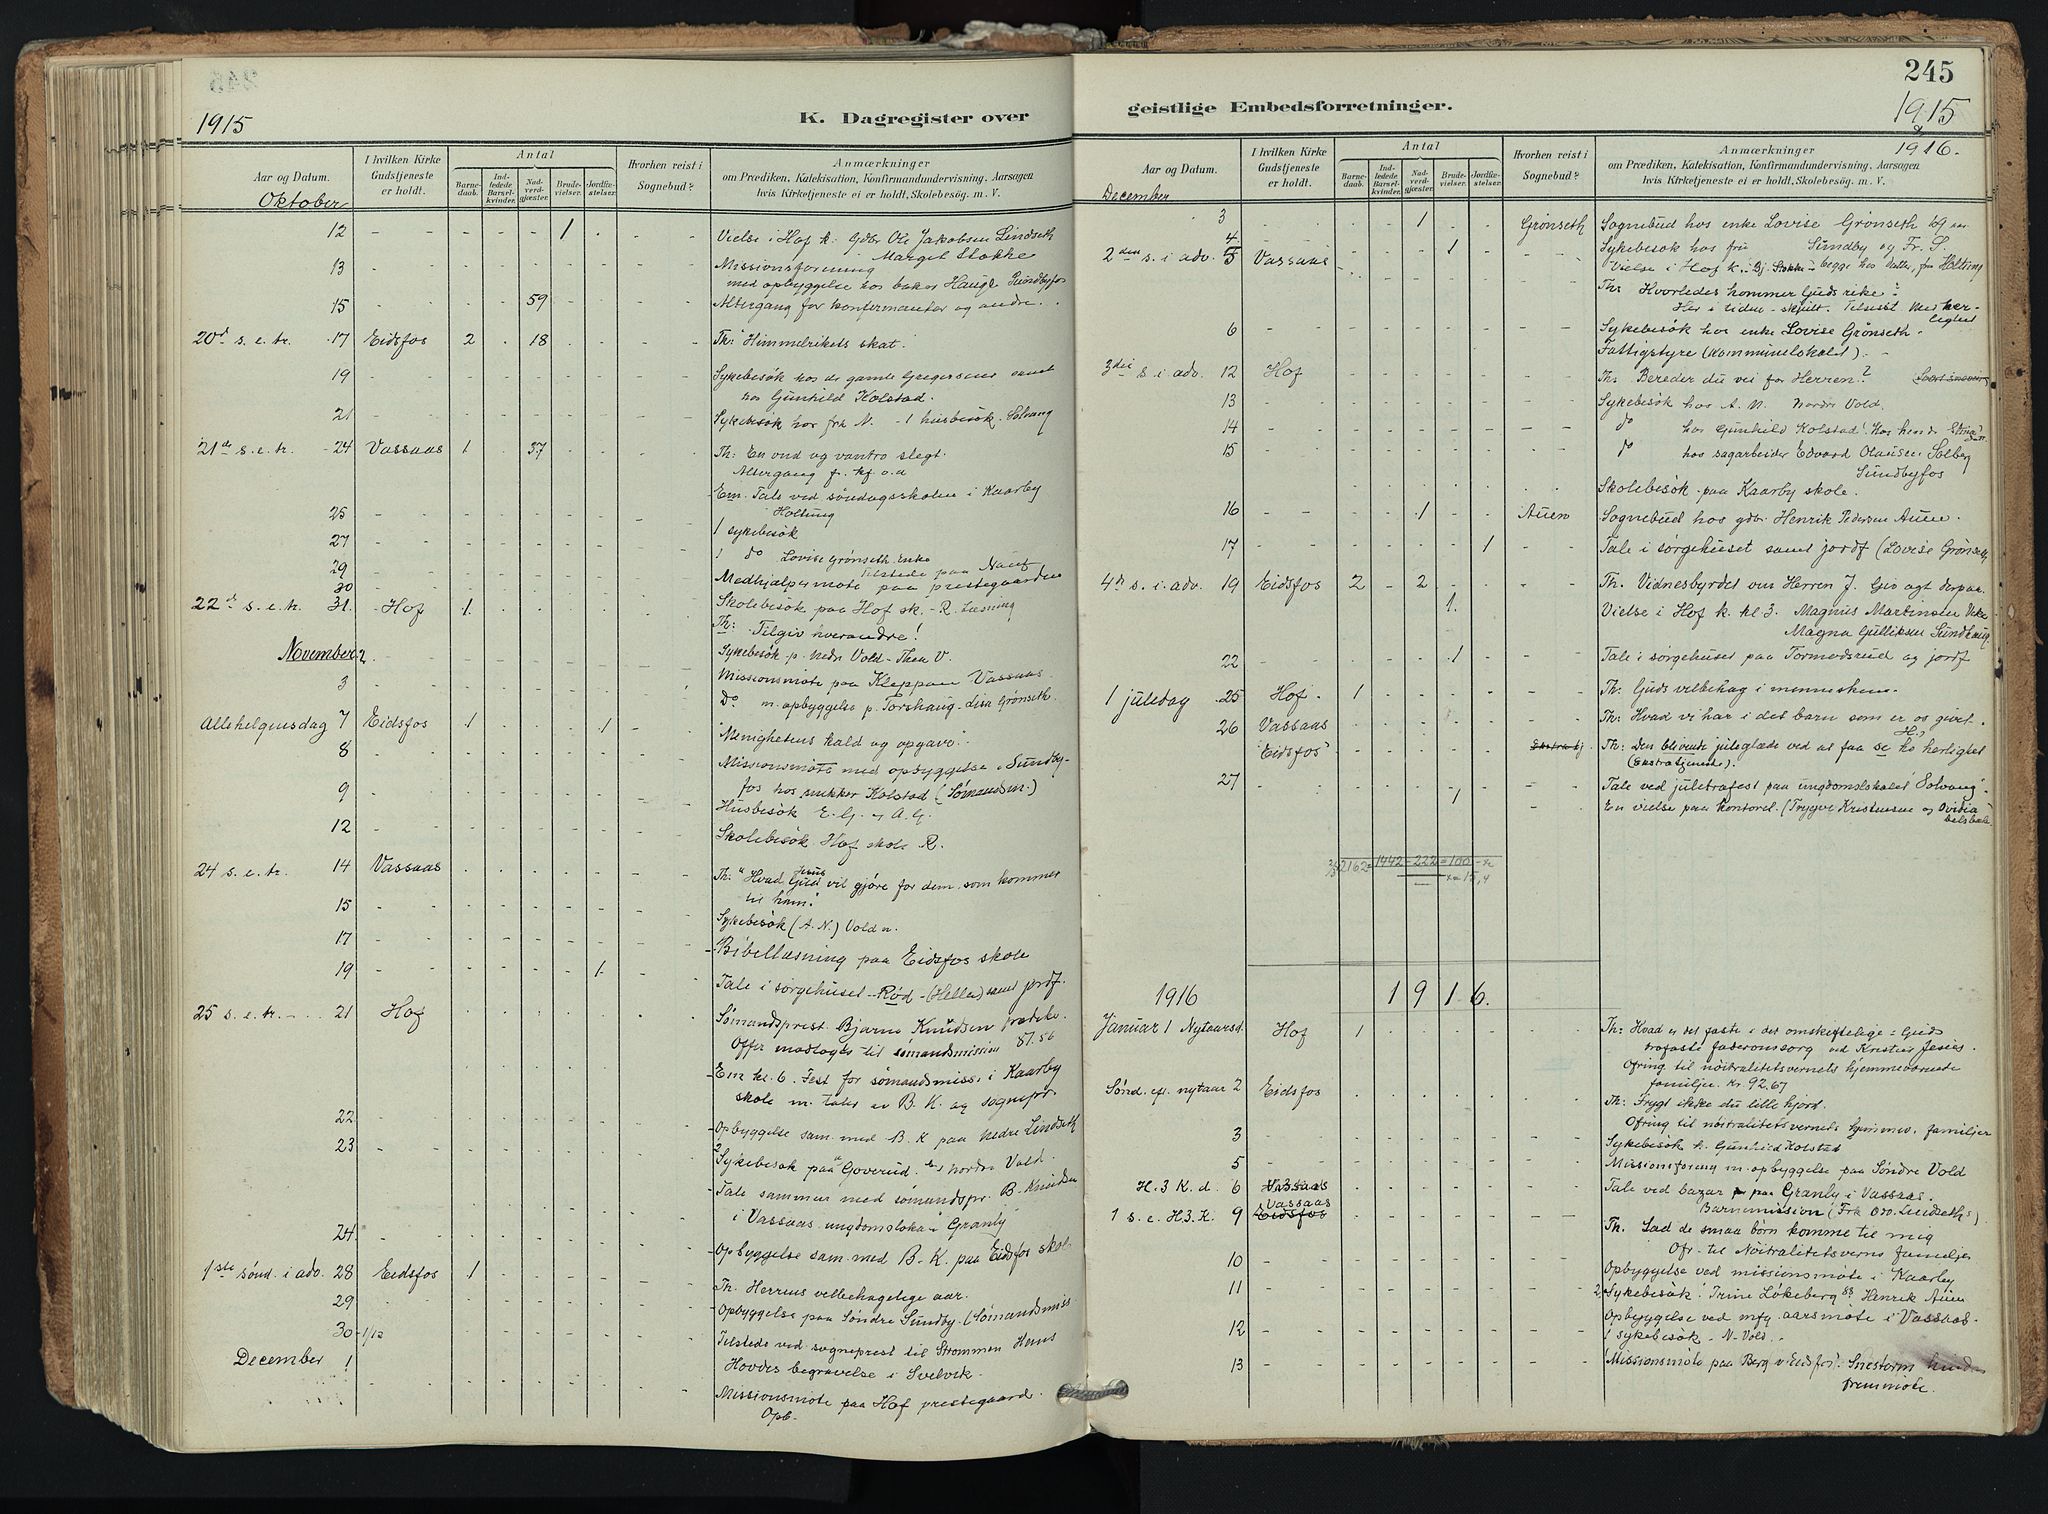 1915
K. Dagregister over
Aar og Datum.
I hvilken Kirke Gudstjeneste er holdt.
Antal
Barnedaab.
Indledede Barselkvinder.
Nadverdgjæster.
Brudevielser.
Jordfæstelser.
Hvorhen reist i Sognebud?
Anmærkninger
om Prædiken, Katekisation, Konfirmandundervisning, Aarsagen
hvis Kirketjeneste ei er holdt, Skolebesøg. m. V.
Oktober
12 1 Vielse i Hof k. Gdbr Ole Jakobsen Lindseth
Margit Stokke
13 Missionsforening
med opbyggelse hos baker Hauge Sundbyfos
15 59 Altergang for konfirmanter og andre.
20d s. e. tr. 17 Eidsfos 2 18 Th: Himmelrikets skat.
19 Sykebesök hos de gamle Gregersens samt
hos Gunhild Kolstad.
21 Sykebesök hos fra N. - 1 husbesök - Solvang
21de s. e. tr. 24 Vassaas 1 37 Th: En ond og vantro slegt.
Altergang f. kf o.a
Em. Tale ved söndagsskolen i Kaarby
25 Holtung
1 sykebesök
27 1 do Lovise Grønseth. enke
29 Tilstede paa
30 Medhjælpermøte paa prestegaarden
22d s. e. tr. 31. Hof 1. Skolebesök paa Hof sk. - R. Læsning
Th: Tilgiv hverandre!
November 2 Sykebesök p. nedr Vold - Thea V.
3 Missionsmøte paa Kleppan Vassaas
do m. opbyggelse p. Torshaug - Lisa Grønseth
Allehelgensdag 7 Eidsfos 1 1 "Menighetens kald og opgave".
8 Missionsmøte med opbyggelse i Sundby-
9 fos hos snekker Kolstad (Sømandsm.)
Husbesök E. G. og A. G.
12 Skolebesök Hof skole R.
24 s. e. tr. 14 Vassaas Th: "Hvad Jesus Gud vil gjøre for dem som kommer
til ham."
15 Sykebesök (A. N.) Vold n.
17 Bibellæsning paa Eidsfos skole
19 1. Tale i sørgehuset - Rød - (Helle) samt jordf.
25 s. e. tr. 21 Hof Sømandsprest Bjarne Knudsen prædike.
Offer modtoges til sømandsmission 87.56
Em kl. 6. Fest for sømandsmiss. i Kaarby
skole m. taler av B. K. og sognepr.
22 Opbyggelse sam. med B. K paa nedre Lindseth
23 2 Sykebesøk paa Goverud. nordre Vold.
Tale sammen med sømandspr. B. Knudsen
i Vassaas ungdomsloka. "Granly"
24 Opbyggelse sam. med B. K. paa Eidsfos skol.
1ste sønd. i adv. 28 Eidsfos 1 Th. Herrens velbehagelige aar.
29 Opbyggelse paa Søndre Sundby. (Sømandsmis
30 - 1/12 Tilstede ved sogneprest til Strømmen Hans
December 1 Hovdes begravelse i Svelvik.
Missionsmøte paa Hof prestegaard.
Opb.
245
geistlige Embedsforretninger.
1915
&
1916.
Aar og Datum.
I hvilken Kirke Gudstjeneste er holdt.
Antal
Barnedaab.
Indledede Barselkvinder.
Nadverdgjæster.
Brudevielser.
Jordfæstelser.
Hvorhen reist i Sognebud?
Anmærkninger
om Prædiken, Katekisation, Konfirmandundervisning, Aarsagen
hvis Kirketjeneste ei er holdt, Skolebesøg. m. V.
December
3 1 Grønseth Sognebud hos enke Lovise Grønseth
4 Sykebesøk hos fru Sundby og Fr. S.
2den s. i adv. 5 Vassaas 1 Vielse i Hof k.
Th: Hvorledes kommer Guds rike?
Her i tiden - skjult. Tilsidst med her-
lighet
6 Sykebesök hos enke Lovise Grönseth.
Fattigstyre (Kommunelokalet).
3die s. i adv. 12 Hof Th: Bereder du vei for Herren?
13 Sykebesök hos A. N. nordre Vold.
14 do hos Gunhild Kolstad.
15 do hos sagarbeider Edvard Olausen Solberg
Sundbyfos
Skolebesök paa Kaarby skole.
16 1 Auen Sognebud hos gdbr. Henrik Pedersen Auen.
17 1 Tale i sørgehuset samt jordf (Lovise Grønseth
4d s. i. adv. 19 Eidsfos 2 2 Th. Vidnesbyrdet om Herren J. Giv agt derpaa
1. Vielse i Hof k. kl 3. Magnus Martinsen Vike
Magna Gulliksen Sundhaug
22 1 Tale i sørgehuset paa Tormodsrud og jordf
1 juledag 25 Hof 1 Th: Guds velbehag i menneskene.
26 Vassaas Th: Hvad vi har i det barn som er os givet.
"Eidsfos" Th: Den blivende juleglæde ved at faa se Hs herlighet
(Ekstratjeneste).
27 Tale ved juletræfest paa ungdomslokalet "Solvang".
1 En vielse paa kontoret. (Trygve Kristensen og Ovidia
2/3 2162 = 1442 - 222 = 100 - x
x = 15,4
1916 1 9 1 6.
Januar 1 Nytaarsd. Hof 1 Th: Hvad er det faste i det omskiftelige = Guds
trofaste faderomsorg ved Kristus Jesus.
Ofring til nøitralitetsvernets hjemmeværende
familjer. Kr. 92.67
Sønd. ef. nytaar 2 Eidsfos Th: Frygt ikke du lille hjord.
Ofring til nøitralitetsvernets hjemmev. familjer
3 Sykebesök h. Gunhild Kolstad
5 Missionsforening m. opbyggelse paa Søndre Vold
H. 3 K. d. 6 Vassaas Tale ved bazar paa Granly i Vassaas.
Vassaas
1 s. e. H3. K. 9 Eidsfos Barnemission (Frk Oro. Lindseths)
Th. Lad de smaa børn komme til mig
Ofr. til Nøitralitetsverns familjer
10 Opbyggelse ved missionsmøte i Kaarby
11 2 Sykebesök: Trine Løkeberg og Henrik Auen
Opbyggelse ved mfg. aarsmøte i Vassaas.
12 1 sykebesök - N. Vold.
13 Missionsmöte paa Berg v. Eidsfos. Snestorm hind-
fremmöte.